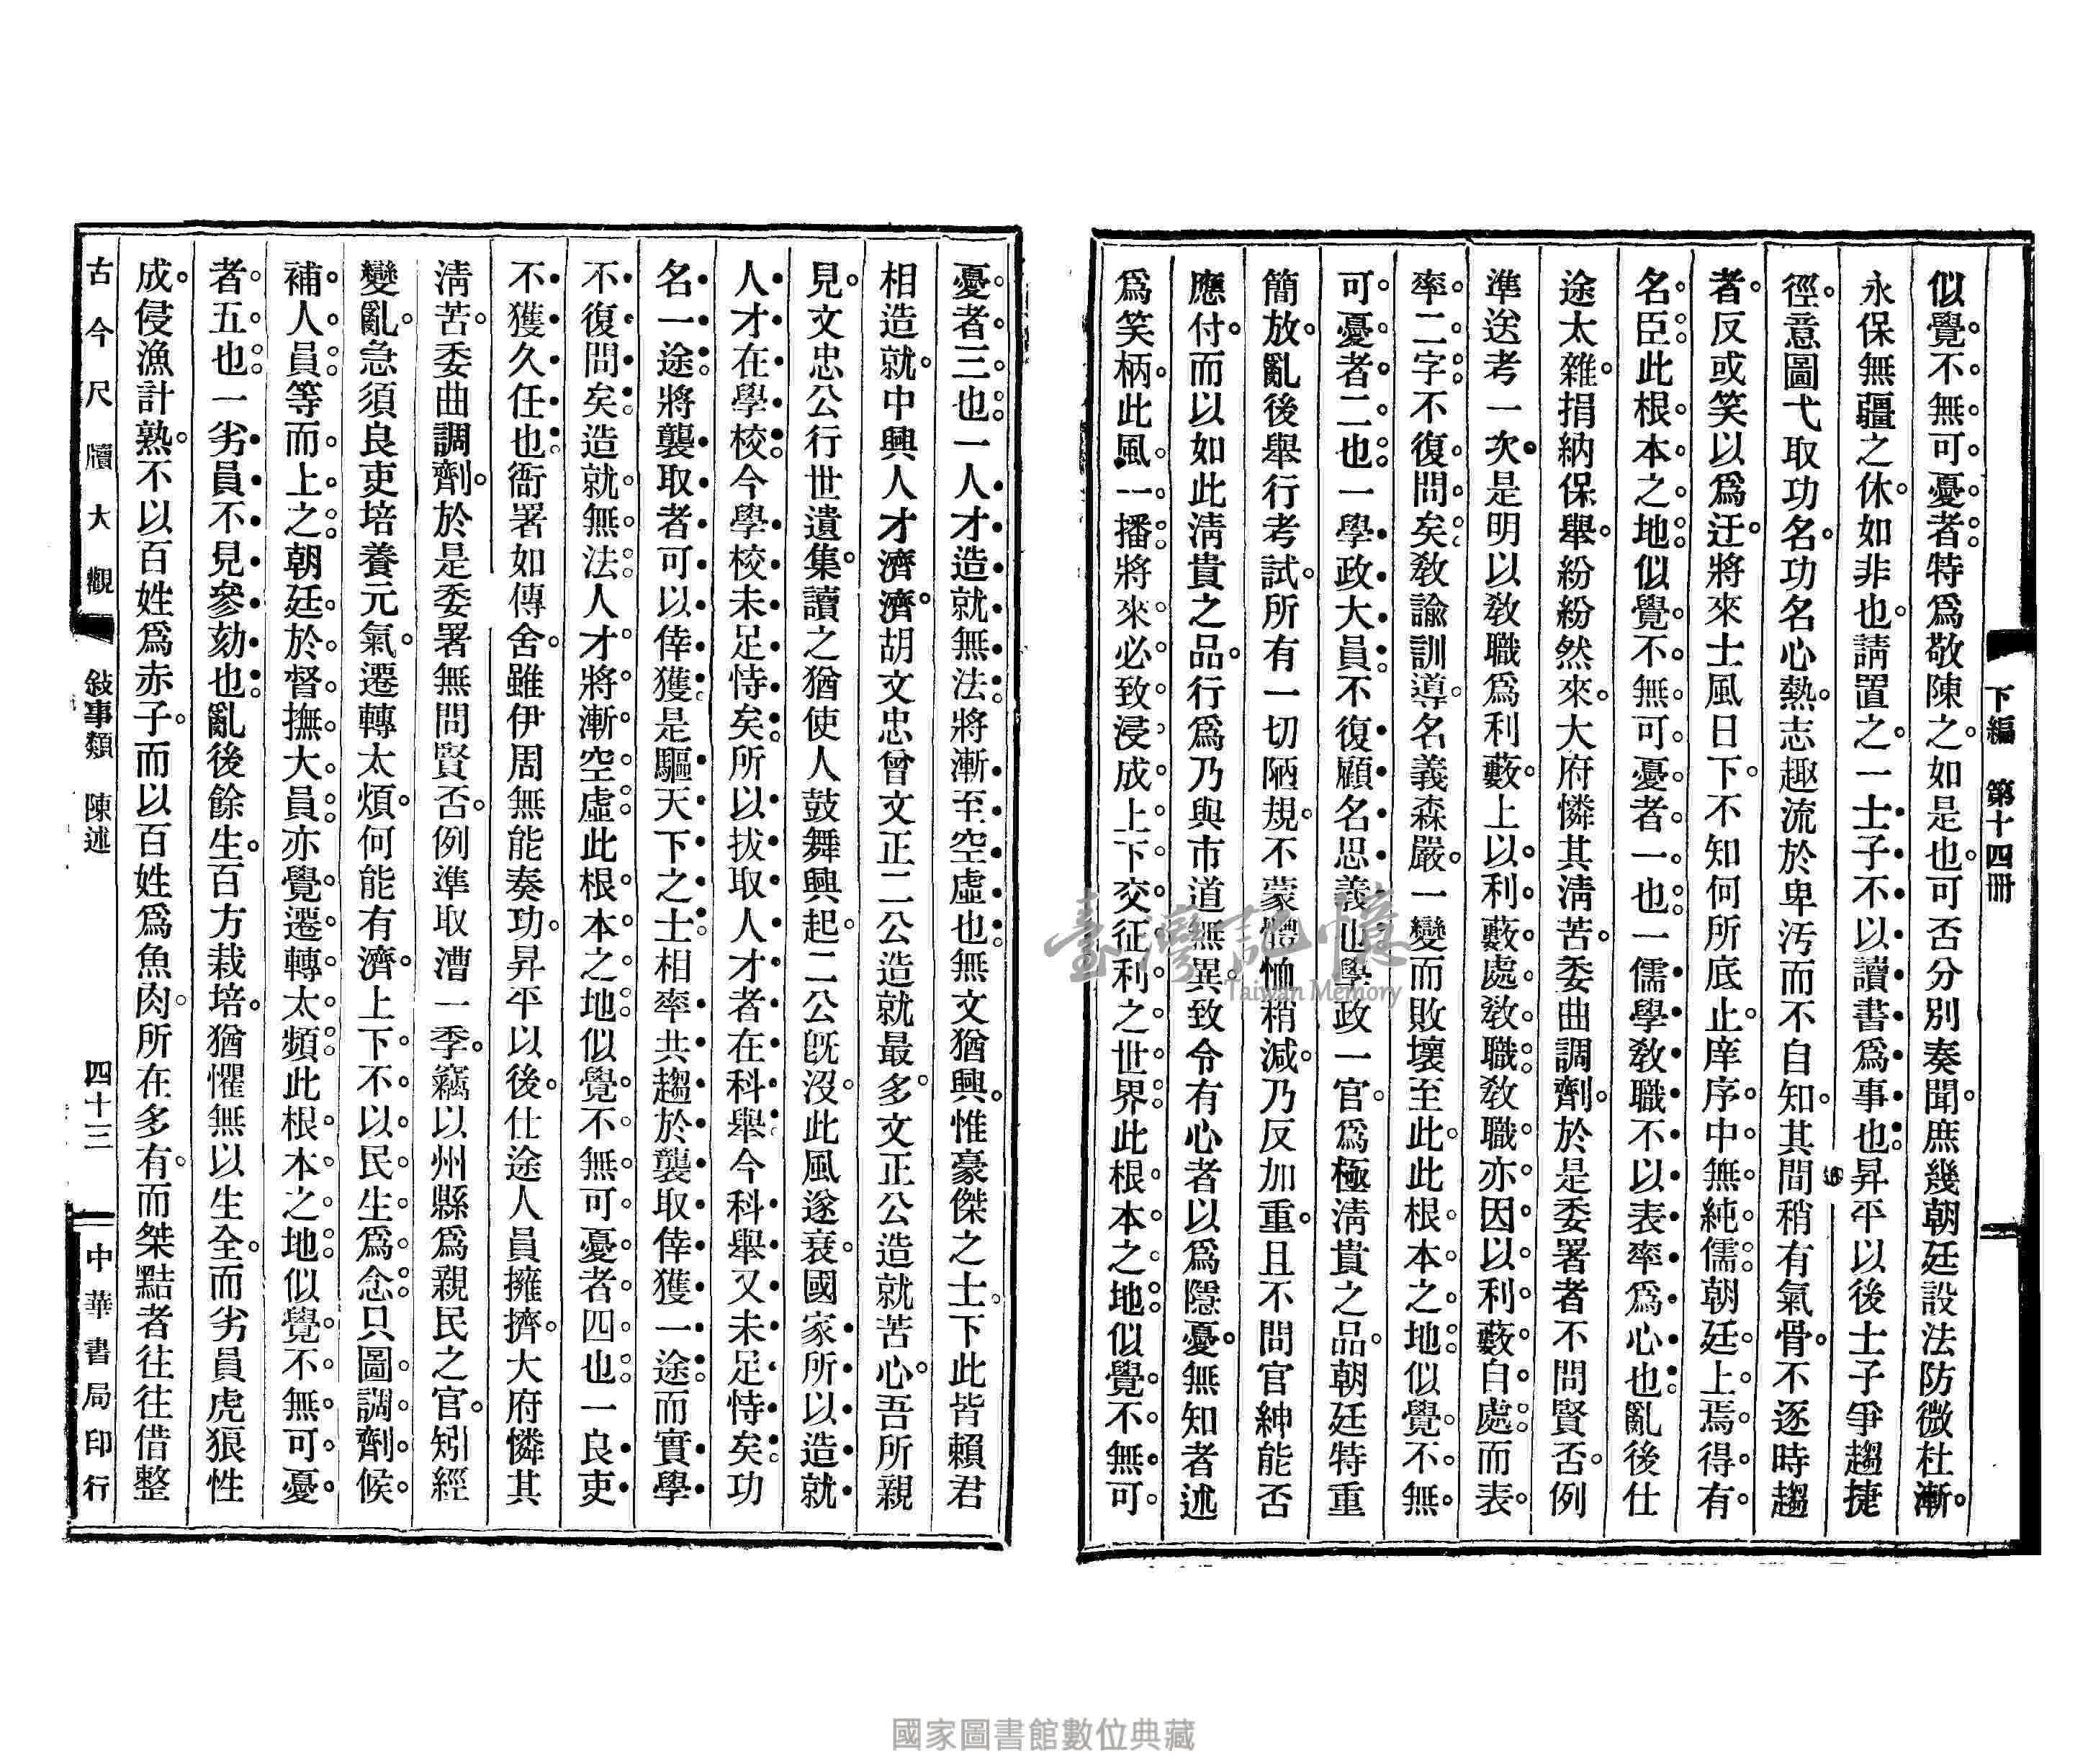 下編　第十四冊
似覺不無可憂者特爲敬陳之如是也可否分別奏聞庶幾朝廷設法防微杜漸
永保無疆之休如非也請置之一士子不以讀書爲事也昇平以後士子爭趨捷
徑意圖弋取功名功名心熱志趣流於卑汚而不自知其間稍有氣骨不逐時趨
者反或笑以爲迂將來士風日下不知何所底止庠序中無純儒朝廷上焉得有
名臣此根本之地似覺不無可憂者一也一儒學敎職不以表率爲心也亂後仕
途太雜捐納保舉紛紛然來大府憐其淸苦委曲調劑於是委署者不問賢否例
準送考一次是明以敎職爲利藪上以利藪處敎職敎職亦因以利藪自處而表
率二字不復問矣敎諭訓導名義森嚴一變而敗壞至此此根本之地似覺不無
可憂者二也一學政大員不復顧名思義也學政一官爲極淸貴之品朝廷特重
簡放亂後舉行考試所有一切陋規不蒙體恤稍減乃反加重且不問官紳能否
應付而以如此淸貴之品行爲乃與市道無異致令有心者以爲隱憂無知者述
爲笑柄此風一播將來必致浸成上下交征利之世界此根本之地似覺不無可
憂者三也一人才造就無法將漸至空虛也無文猶興惟豪傑之士下此皆賴君
相造就中興人才濟濟胡文忠曾文正二公造就最多文正公造就苦心吾所親
見文忠公行世遺集讀之猶使人鼓舞興起二公旣沒此風遂衰國家所以造就
人才在學校今學校未足恃矣所以拔取人才者在科舉今科舉又未足恃矣功
名一途將襲取者可以倖獲是驅天下之士相率共趨於襲取倖獲一途而實學
不復問矣造就無法人才將漸空虛此根本之地似覺不無可憂者四也一良吏
不獲久任也衙署如傳舍雖伊周無能奏功昇平以後仕途人員擁擠大府憐其
淸苦委曲調劑於是委署無問賢否例準取漕一季竊以州縣爲親民之官矧經
變亂急須良吏培養元氣遷轉太煩何能有濟上下不以民生爲念只圖調劑候
補人員等而上之朝廷於督撫大員亦覺遷轉太頻此根本之地似覺不無可憂
者五也一劣員不見參劾也亂後餘生百方栽培猶懼無以生全而劣員虎狼性
成侵漁計熟不以百姓爲赤子而以百姓爲魚肉所在多有而桀黠者往往借整
古今尺牘大觀　敍事類　陳述　四十三　中華書局印行
臺灣記憶
Taiwan Memory
國家圖書館數位典藏